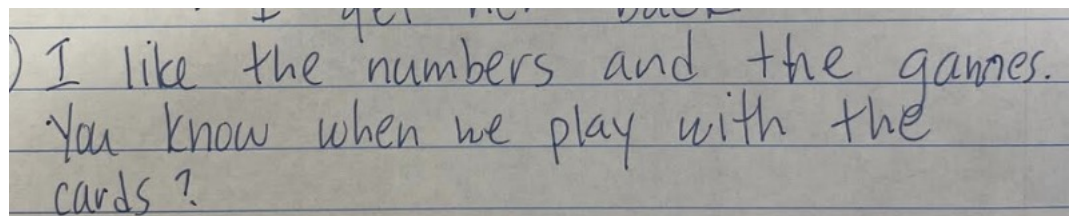 I get her back
) I like the numbers and the games.
You know when we play with the
cards?